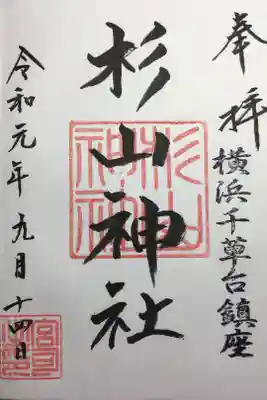 奉拝
横浜千草台鎮座
杉山神社
杉山神社
令和元年九月十四日